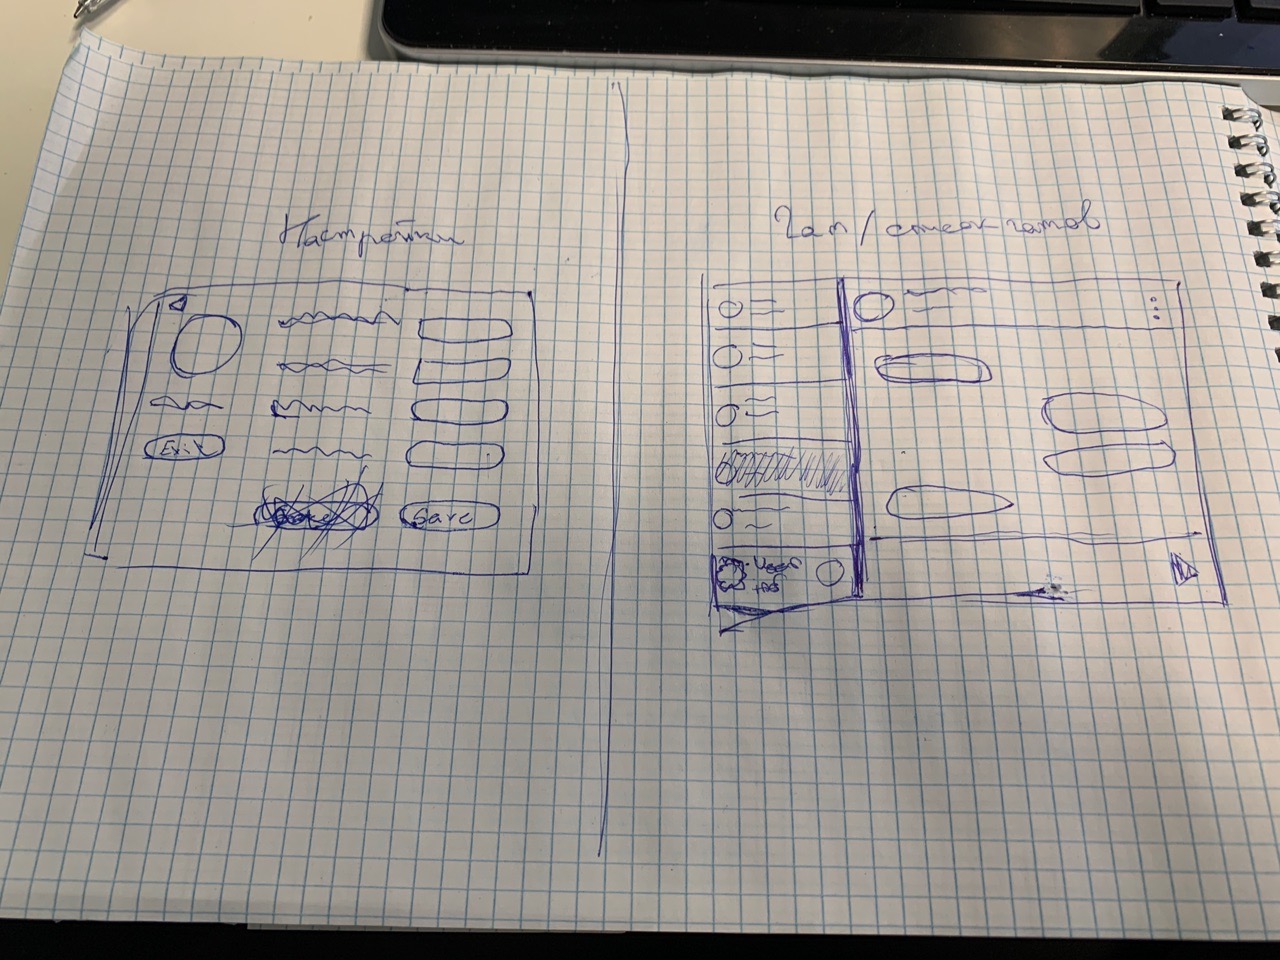 Настройки
Exit
Save
Чат / список чатов